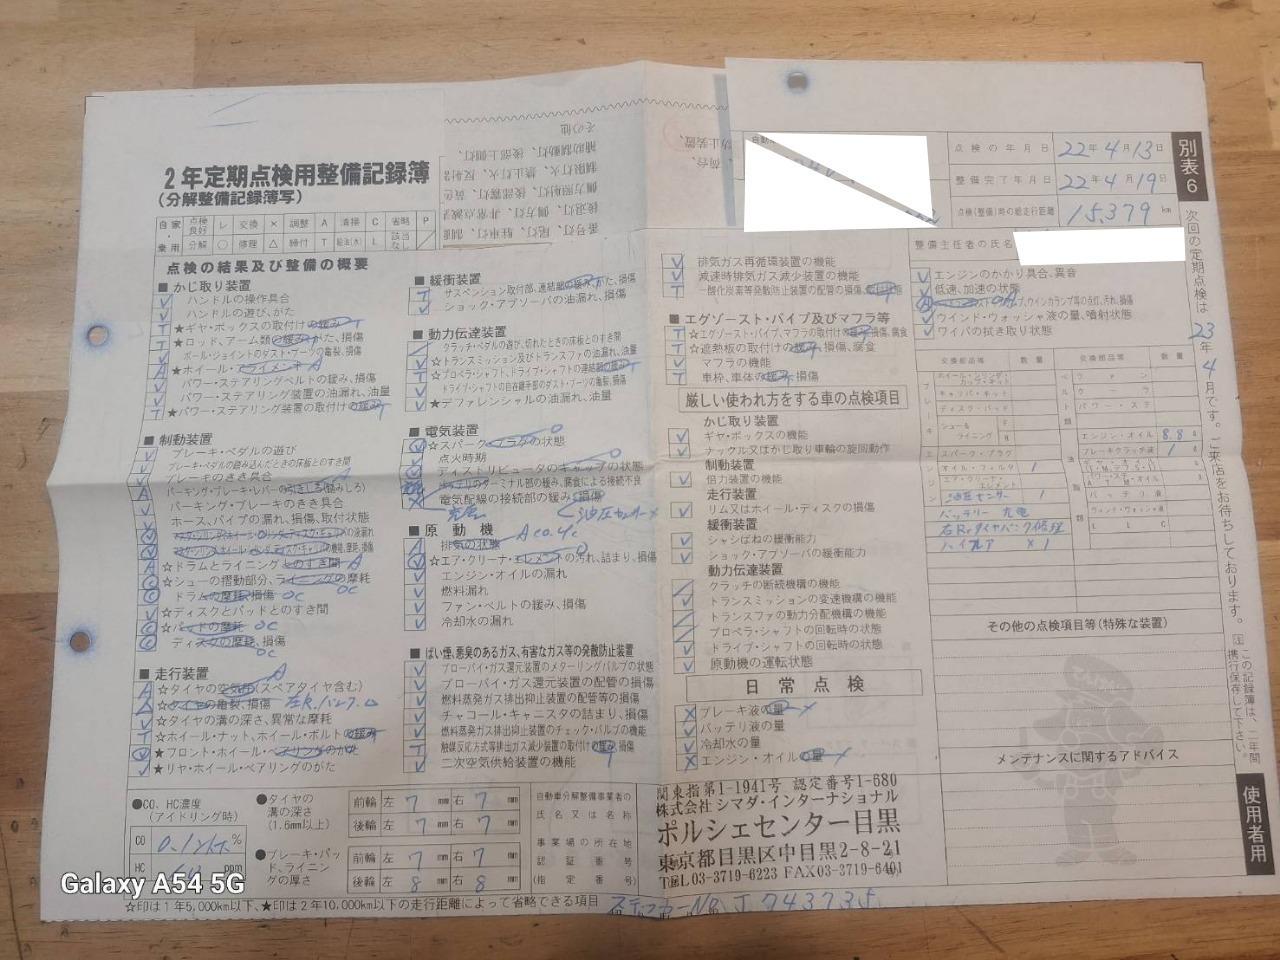 2年定期点検用整備記録簿
(分解整備記録簿写)
自家・乗用
点検良好 レ 交換 × 調整 A 清掃 C 省略 P
分解 ○ 修理 △ 締付 T 給油(水) L 該当なし ／
点検の結果及び整備の概要
■かじ取り装置
ハンドルの操作具合
ハンドルの遊び、がた
★ギヤ・ボックスの取付けの緩み T
★ロッド、アーム類の緩み、がた、損傷
ボール・ジョイントのダスト・ブーツの亀裂、損傷
★ホイール・アライメント A
パワー・ステアリングベルトの緩み、損傷
パワー・ステアリング装置の油漏れ、油量
★パワー・ステアリング装置の取付けの緩み T
■制動装置
ブレーキ・ペダルの遊び
ブレーキ・ペダルの踏み込んだときの床板とのすき間
ブレーキのきき具合
パーキング・ブレーキ・レバーの引きしろ(踏みしろ)
パーキング・ブレーキのきき具合
ホース、パイプの漏れ、損傷、取付状態
☆ドラムとライニングとのすき間 A
☆シューの摺動部分、ライニングの摩耗
ドラムの摩耗、損傷 OC
☆ディスクとパッドとのすき間
☆パッドの摩耗 OC
ディスクの摩耗、損傷
OC
■走行装置
☆タイヤの空気圧(スペアタイヤ含む) A
☆タイヤの亀裂、損傷 左R.パンク
☆タイヤの溝の深さ、異常な摩耗
☆ホイール・ナット、ホイール・ボルトの緩み
★フロント・ホイール・ベアリングのがた
★リヤ・ホイール・ベアリングのがた
■緩衝装置
サスペンション取付部、連結部の緩み、がた、損傷
ショック・アブソーバの油漏れ、損傷
■動力伝達装置
クラッチ・ペダルの遊び、切れたときの床板とのすき間
☆トランスミッション及びトランスファの油漏れ、油量
☆プロペラ・シャフト、ドライブ・シャフトの連結部の緩み T
ドライブ・シャフトの自在継手部のダスト・ブーツの亀裂、損傷
★デファレンシャルの油漏れ、油量
■電気装置
☆スパーク・プラグの状態
点火時期
ディストリビュータのキャップの状態
バッテリのターミナル部の緩み、腐食による接続不良
電気配線の接続部の緩み、損傷
充電 油圧センサー×
■原動機
排気の状態 A CO.4c
☆エア・クリーナ・エレメントの汚れ、詰まり、損傷
エンジン・オイルの漏れ
燃料漏れ
ファン・ベルトの緩み、損傷
冷却水の漏れ
■ばい煙、悪臭のあるガス、有害なガス等の発散防止装置
ブローバイ・ガス還元装置のメターリングバルブの状態
ブローバイ・ガス還元装置の配管の損傷
燃料蒸発ガス排出抑止装置の配管等の損傷
チャコール・キャニスタの詰まり、損傷
燃料蒸発ガス排出抑止装置のチェック・バルブの機能
触媒反応方式等排出ガス減少装置の取付けの緩み、損傷
二次空気供給装置の機能
排気ガス再循環装置の機能
減速時排気ガス減少装置の機能
一酸化炭素等発散防止装置の配管の損傷、取付状態
■エグゾースト・パイプ及びマフラ等
☆エグゾースト・パイプ、マフラの取付けの緩み、損傷、腐食
☆遮熱板の取付けの緩み、損傷、腐食
マフラの機能
車枠、車体の緩み、損傷
厳しい使われ方をする車の点検項目
かじ取り装置
ギヤ・ボックスの機能
ナックル又はかじ取り車輪の旋回動作
制動装置
倍力装置の機能
走行装置
リム又はホイール・ディスクの損傷
緩衝装置
シャシばねの緩衝能力
ショック・アブソーバの緩衝能力
動力伝達装置
クラッチの断続機構の機能
トランスミッションの変速機構の機能
トランスファの動力分配機構の機能
プロペラ・シャフトの回転時の状態
ドライブ・シャフトの回転時の状態
原動機の運転状態
日常点検
ブレーキ液の量
バッテリ液の量
冷却水の量
エンジン・オイルの量
点検の年月日 22年4月13日
整備完了年月日 22年4月19日
点検(整備)時の総走行距離 15,379 km
整備主任者の氏名
エンジンのかかり具合、異音
低速、加速の状態
ウインド・ウォッシャ液の量、噴射状態
ワイパの拭き取り状態
交換部品等 数量 交換部品等 数量
ホイール・シリンダ・カップ・キット
キャリパ・キット
ディスク・パッド
シュー&ライニング F R
スパーク・プラグ
オイル・フィルタ 1
エア・クリーナ・エレメント
油圧センサー 1
バッテリー 充電
右Rrタイヤパンク修理
バルブ ×1
エンジン・オイル 8.8
ブレーキクラッチ液 1
バッテリ液
L L C
その他の点検項目等(特殊な装置)
メンテナンスに関するアドバイス
別表6
次回の定期点検は23年4月です。ご来店をお待ちしております。
注 この記録簿は、二年間携行保存して下さい。
使用者用
●CO、HC濃度
(アイドリング時)
CO 0.1 %
HC ppm
●タイヤの溝の深さ(1.6mm以上)
前輪 左 7 mm 右 7 mm
後輪 左 7 mm 右 7 mm
●ブレーキ・パッド、ライニングの厚さ
前輪 左 7 mm 右 7 mm
後輪 左 8 mm 右 8 mm
自動車分解整備事業者の
氏名又は名称
事業場の所在地
認証番号
(指定番号)
関東指第1-1941号 認定番号1-680
株式会社シマダ・インターナショナル
ポルシェセンター目黒
東京都目黒区中目黒2-8-21
TEL03-3719-6223 FAX03-3719-6401
☆印は1年5,000km以下、★印は2年10,000km以下の走行距離によって省略できる項目
ステッカーNo. J
Galaxy A54 5G